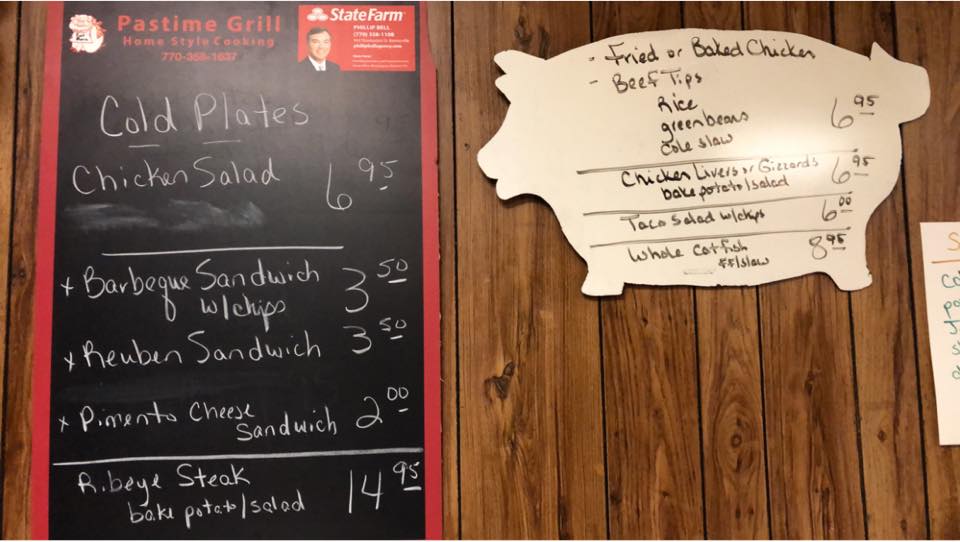 Pastime Grill
Home Style Cooking
770-358-1637
State Farm
PHILLIP BELL
(770) 358-1108
Cold Plates
Chicken Salad 6 95
x Barbeque Sandwich 3 50
w/chips
x Reuben Sandwich 3 50
x Pimento Cheese 2 00
Sandwich
Ribeye Steak 14 95
bake potato/salad
- Fried or Baked Chicken
- Beef Tips
Rice
greenbeans 6 95
cole slaw
Chicken Livers or Gizzards 6 95
bake potato/salad
Taco Salad w/chips 6 00
Whole Catfish 8 95
FF/slaw